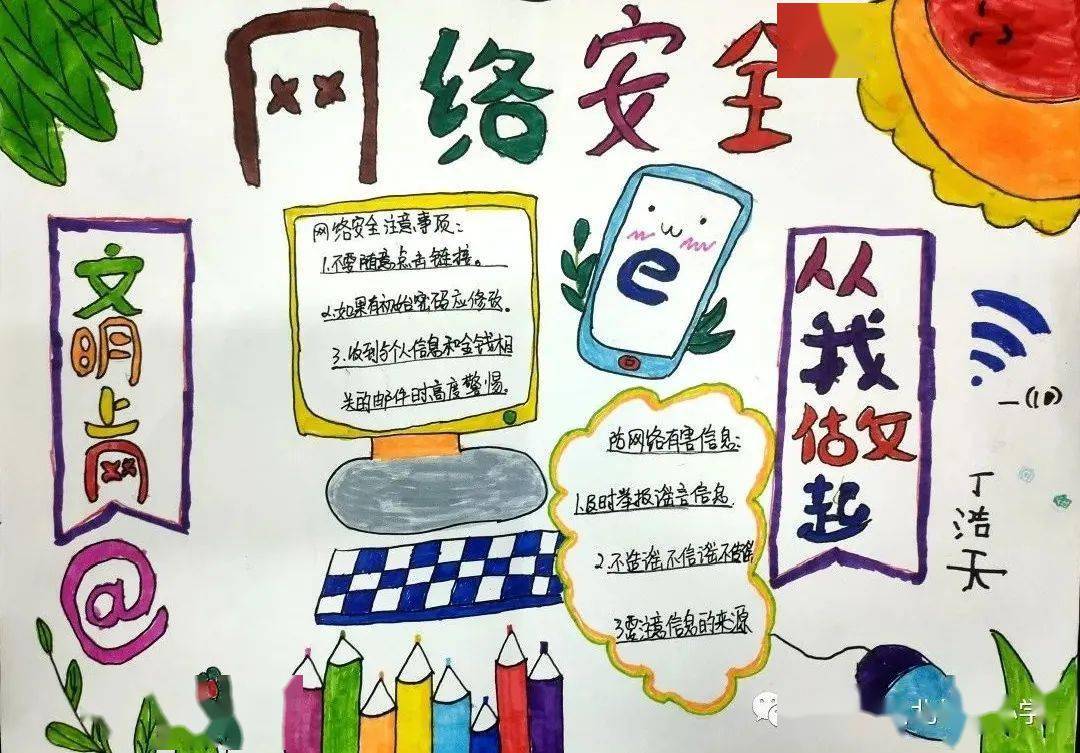 网络安全
文明上网
@
网络安全注意事项：
1.不要随意点击链接。
2.如果有初始密码应修改。
3.收到与个人信息和金钱相
关的邮件时高度警惕。
e
防网络有害信息：
1.及时举报谣言信息
2.不造谣不信谣不传谣
3要注意信息的来源
从
我
做
起
一(10)
丁浩天
学